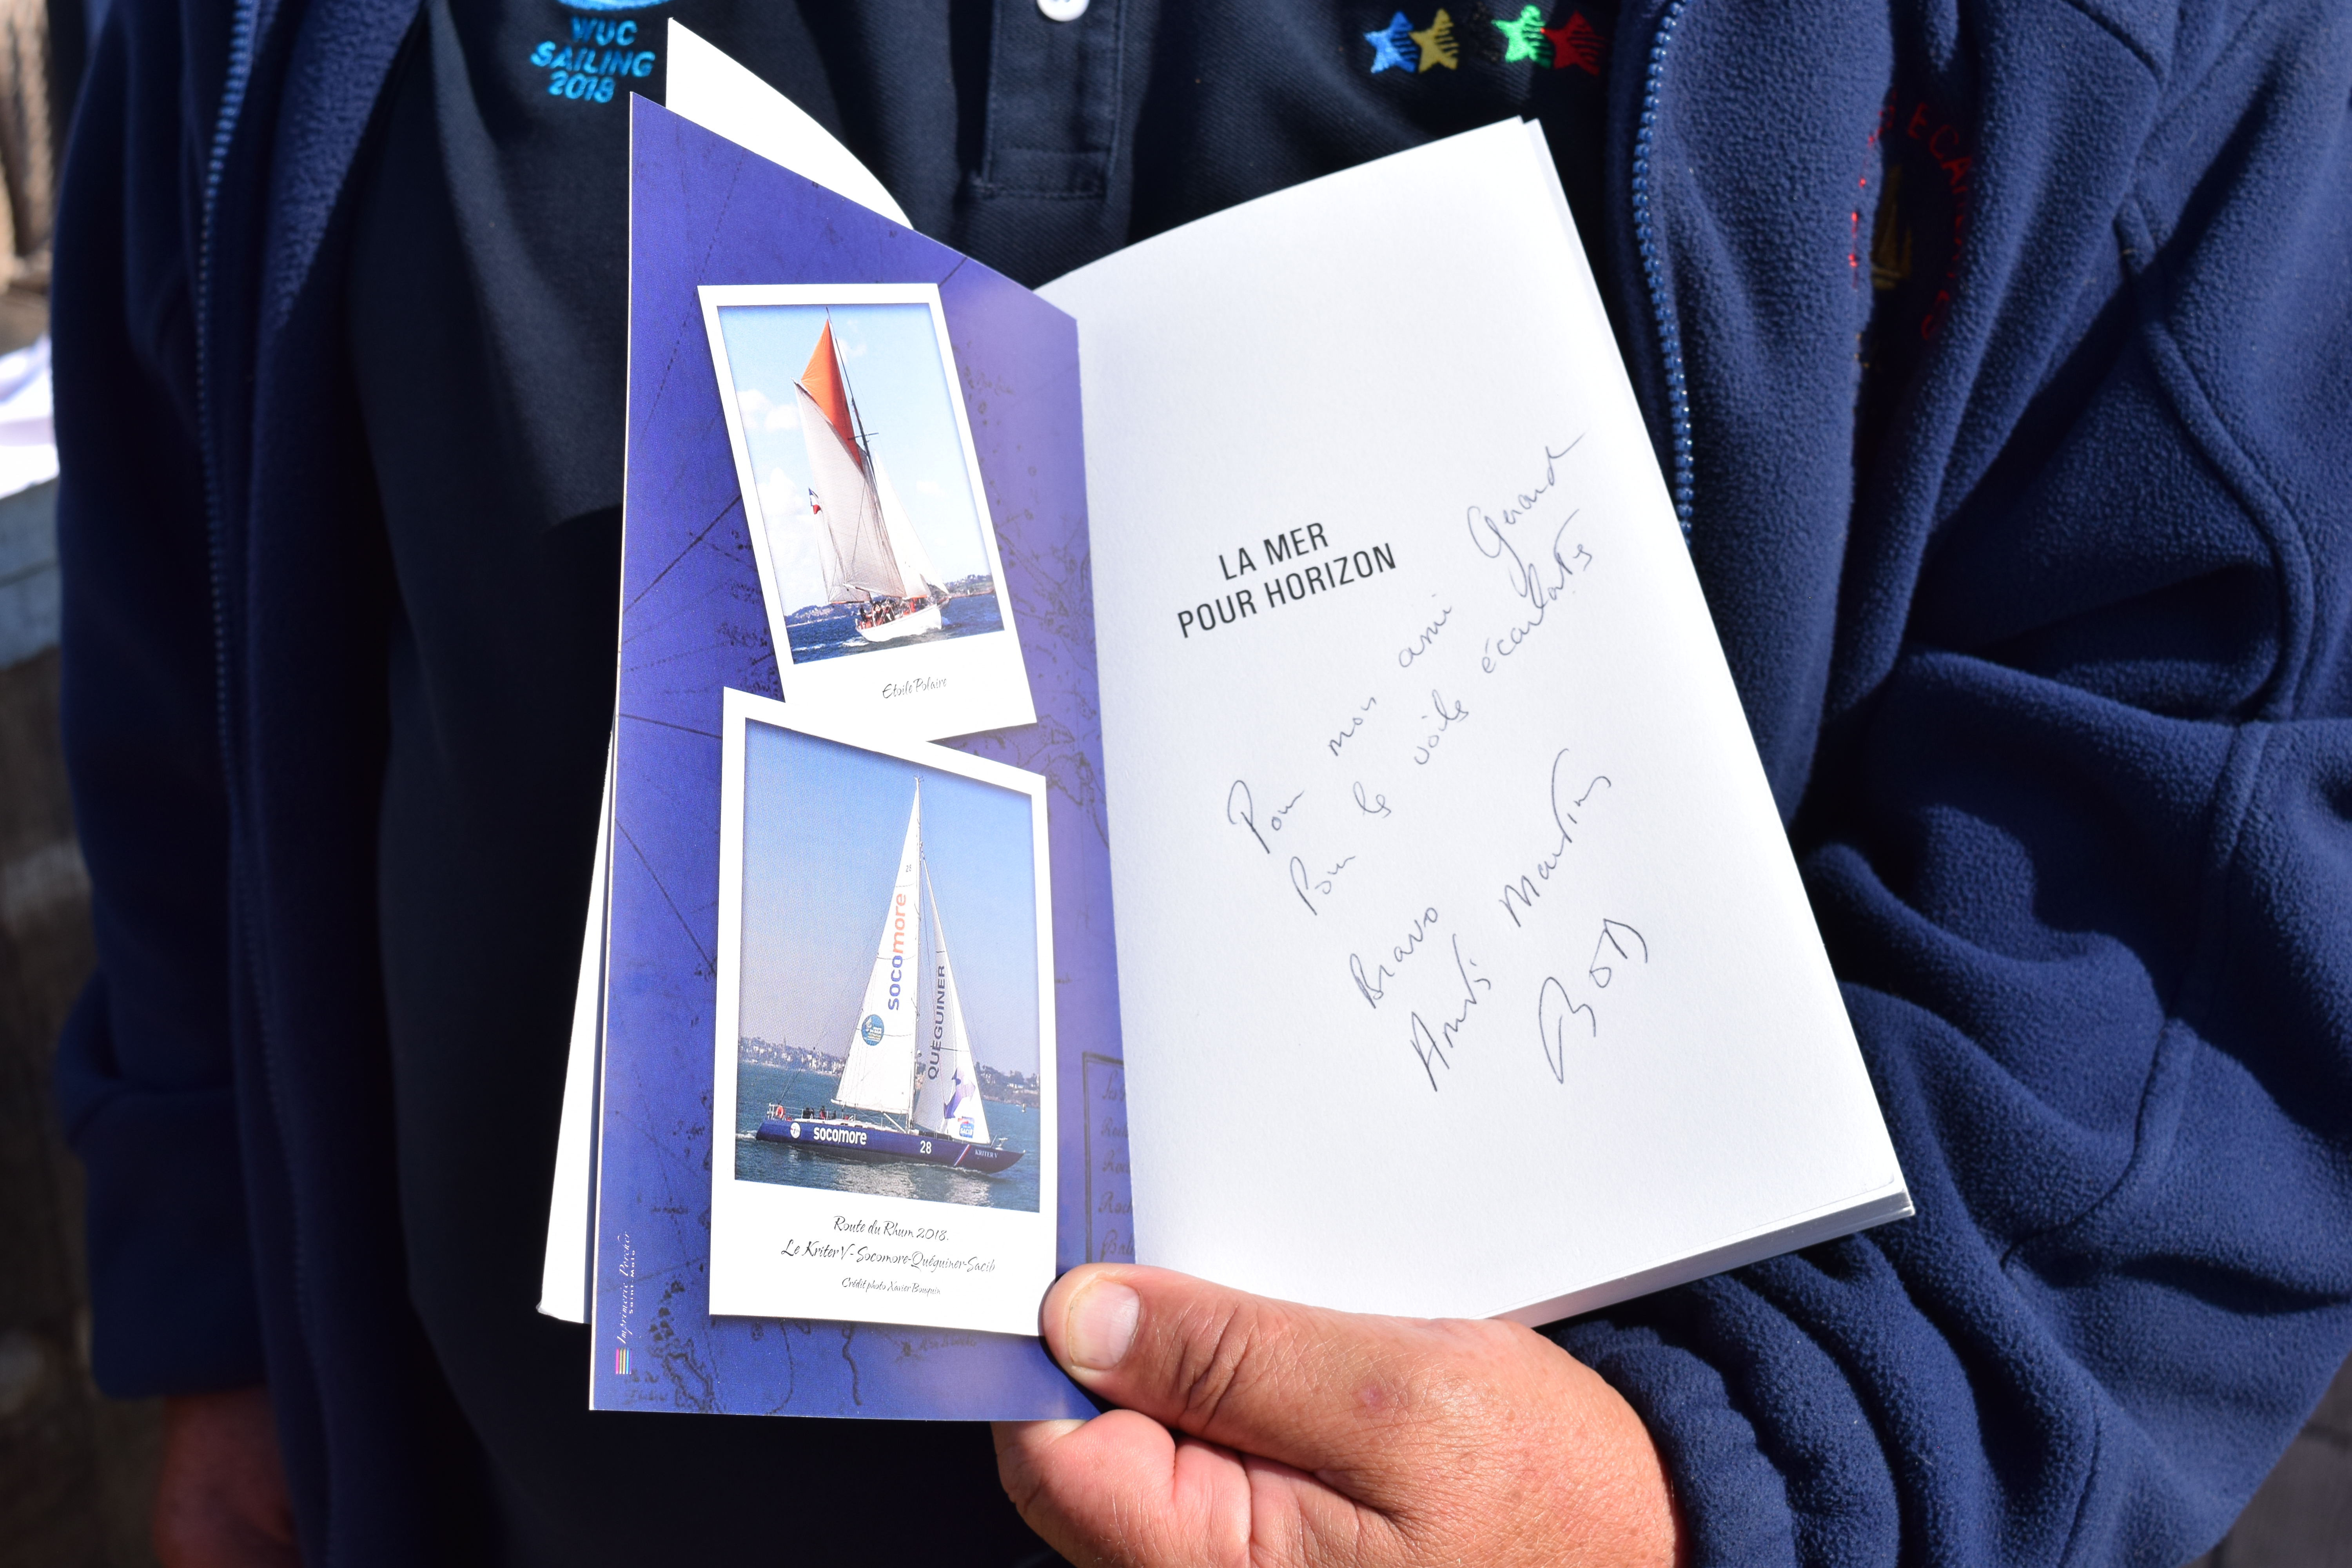 WUC
SAILING
2018
Etoile Polaire
socomore
QUÉGUINER
socomore
28
KRITER V
Route du Rhum 2018.
Le Kriter V - Socomore-Quéguiner-Sacib
Crédit photo Xavier
Imprimerie
Saint Malo
LA MER
POUR HORIZON
Pour mon ami Gérard
Pour la voile écarlate
Bravo
Amitiés
Bob